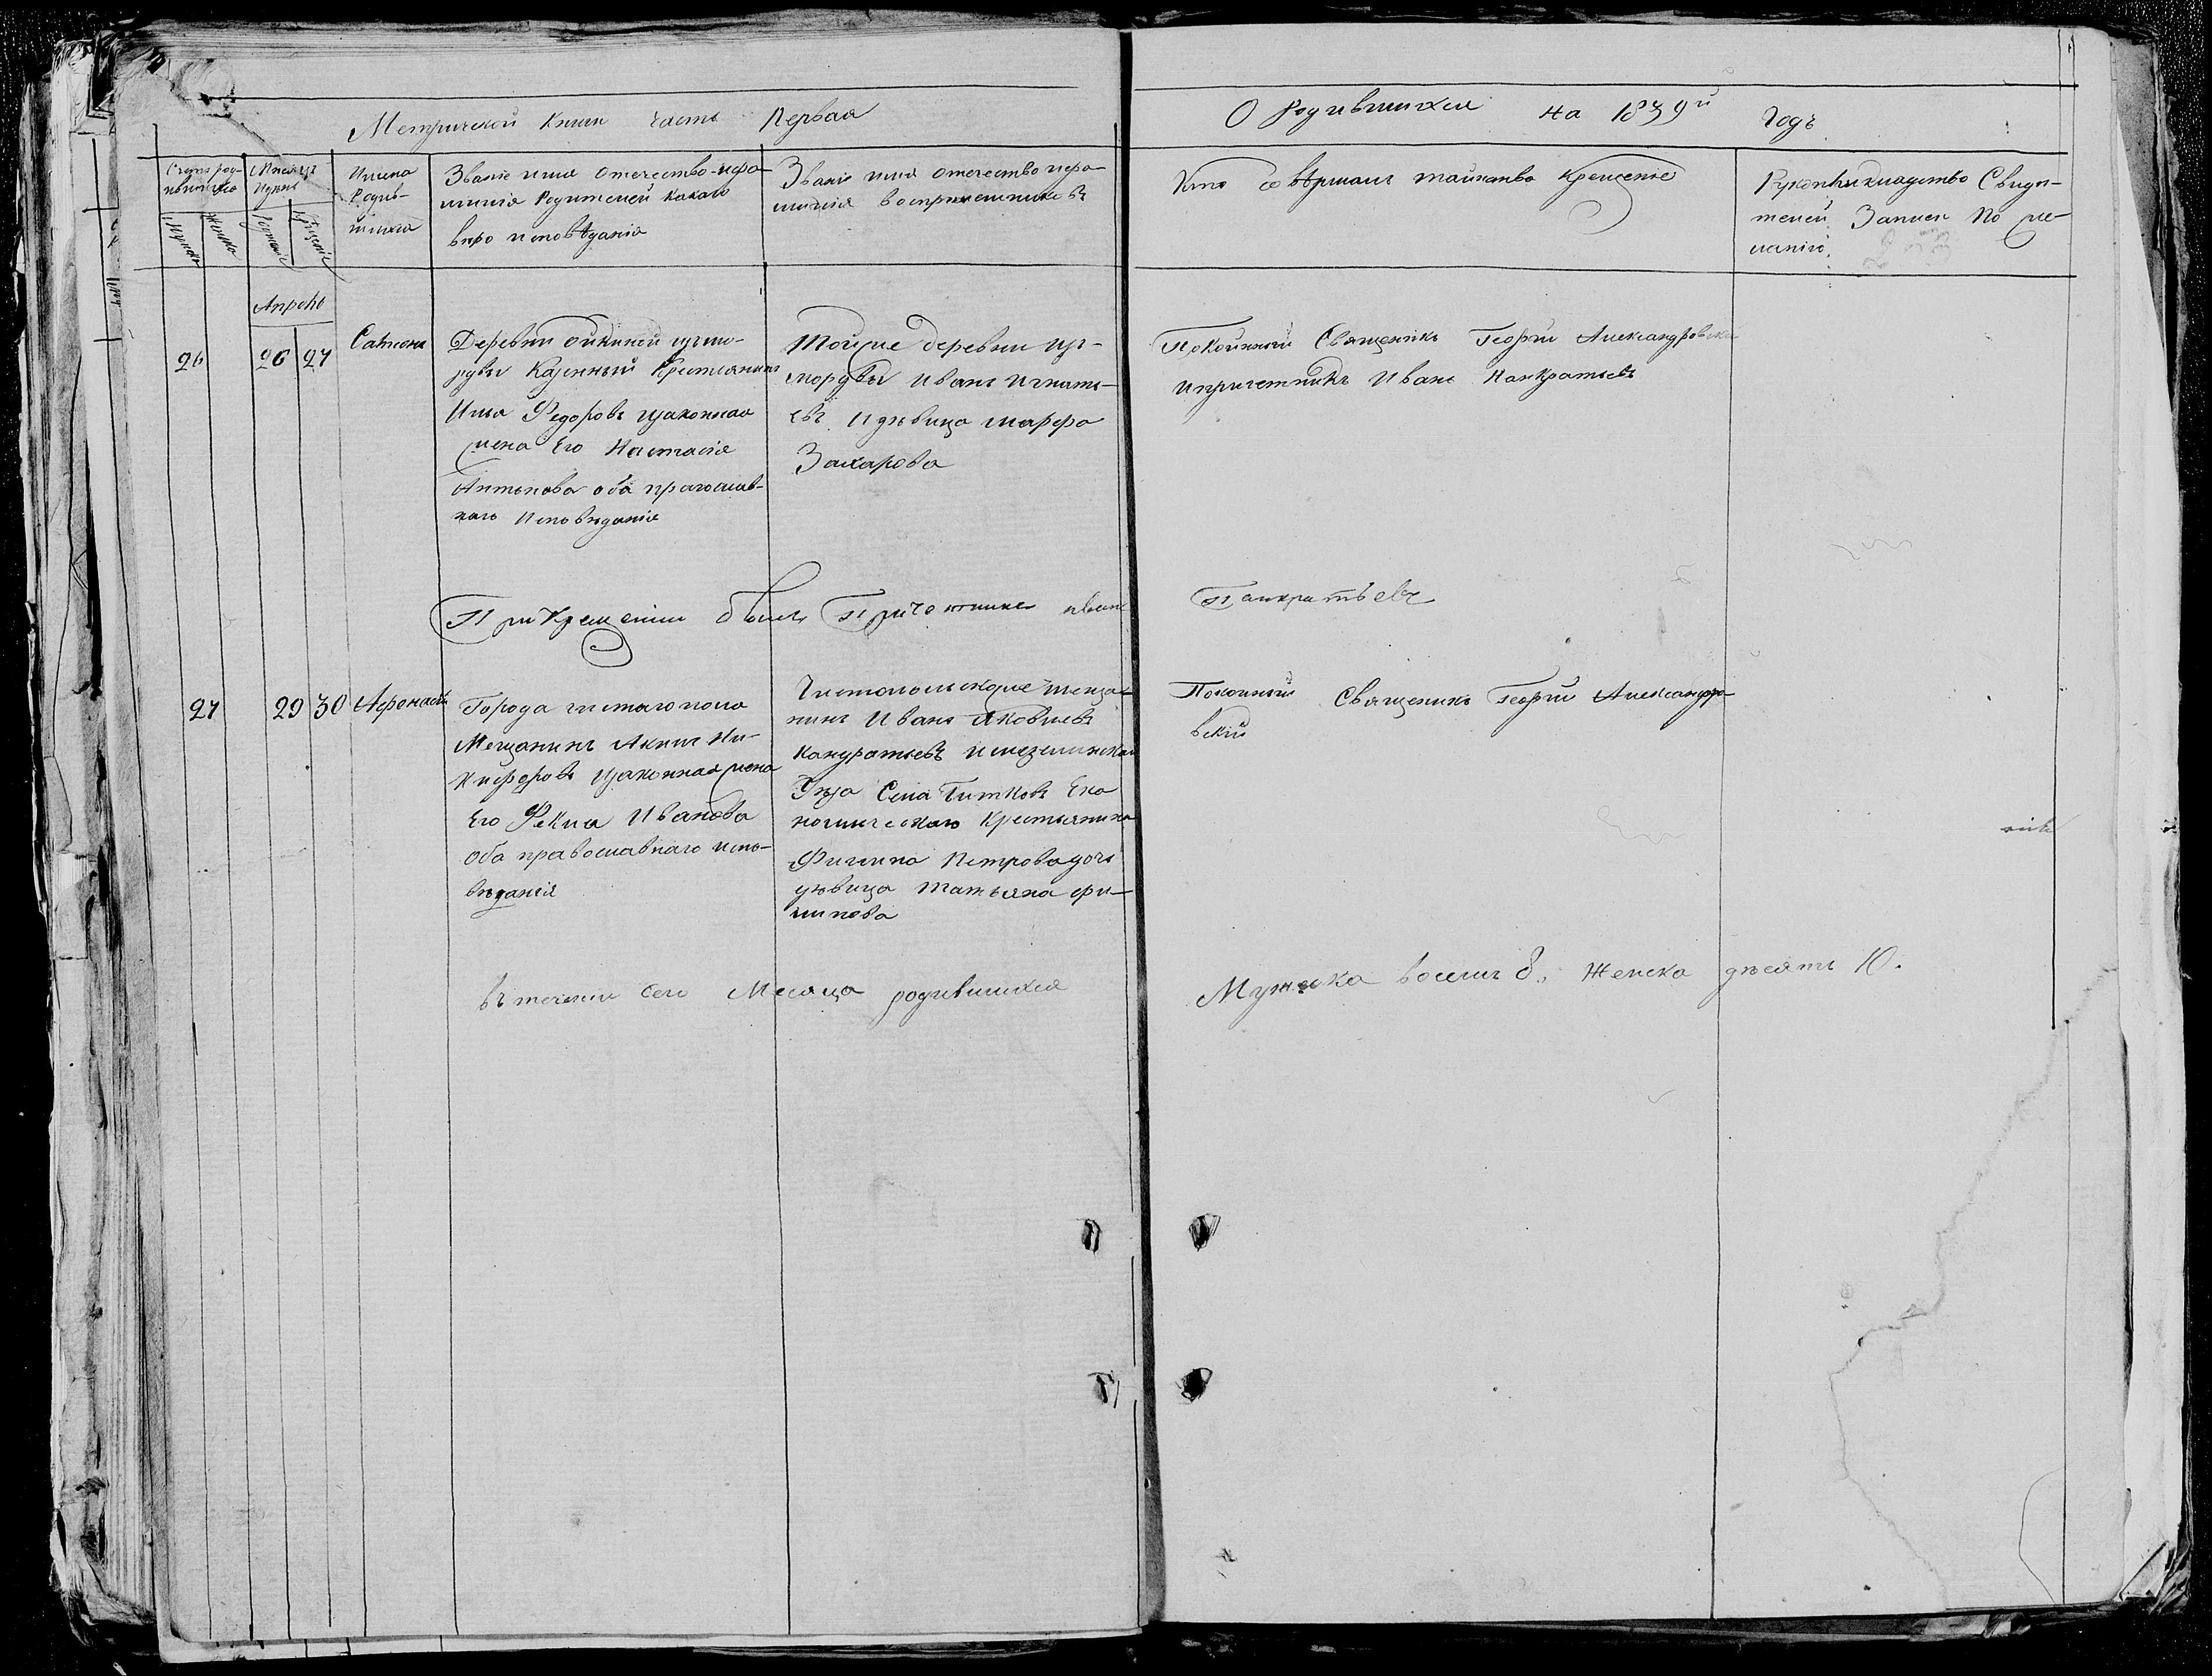 Метрической Книги часть Первая
О Родившихся на 1839й Годъ
Счетъ родившихся
Мужска
Женска
Месяцъ и день
Рожденiе
Крещенiе
Имена
Родив-
шихся
Званiе имя отечество и фа-
милiя Родителей какаго
веро исповѣданiя
Званiе имя отечество и фа-
милiя воспрiемниковъ
Кто совѣршалъ таинство крещенiе
Рукоприкладство Свидѣ-
телей Записи По же-
ланiю
Апрель
26
26 27
Деревни
Казенный Крестьянинъ
Федоровъ и законная
жена Его Настасiя
Антонова оба
Исповѣданiя
Тойже деревни из-
мордвы Иванъ Игнать-
евъ и дѣвица марфа
Захарова
Покойный Священикъ Георгiй Александровскiй
и причетникъ Иванъ Панкратьевъ
При Крещенiи былъ Причетникъ иванъ
Панкратьевъ
27
29 30
Афонасiй
Города чистаго поля
Мещанинъ Акимъ Ни-
кифоровъ и законная жена
Его Фекла Иванова
Оба православнаго испо-
вѣданiя
Чистопольской же меща-
нинъ Иванъ Яковлевъ
Кондратьевъ и мензелинскаго
Уѣзда Села
Крестьянина
Филипа Петрова дочь
дѣвица Татьяна Фи-
липова
Покойный Священикъ Георгiй Александро-
вскiй
въ теченiи Сего Месяца родившихся
Мужска восемь 8. Женска дѣсять 10.